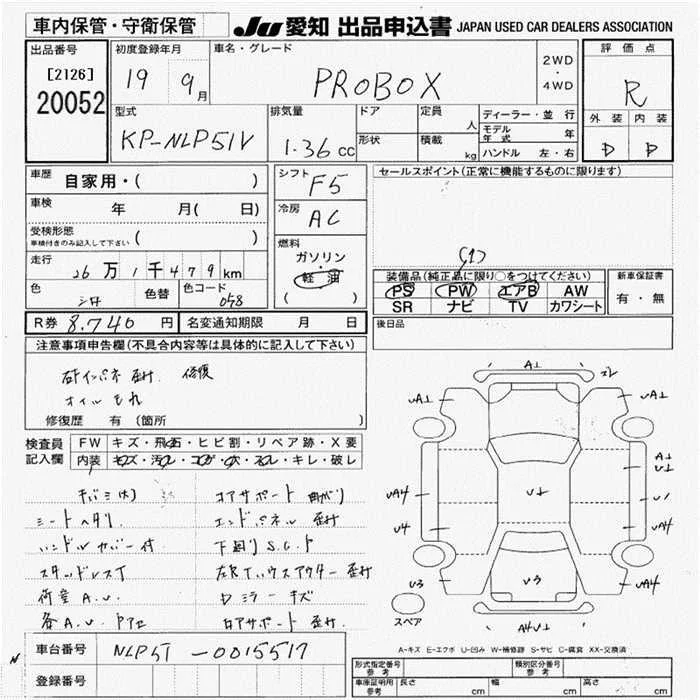 車内保管・守衛保管
JU 愛知 出品申込書 JAPAN USED CAR DEALERS ASSOCIATION
出品番号
[2126]
20052
初度登録年月
19 9月
車名・グレード
PROBOX
2WD
・
4WD
評価点
R
外装 内装
D D
型式
KP-NLP51V
排気量
1.36cc
ドア
形状
定員
人
積載
kg
ディーラー・並行
モデル年式 年
ハンドル 左・右
車歴 自家用・( )
車検 年 月( 日)
受検形態
車検付きのみ記入して下さい ( )
走行 26万1千479km
色 シロ 色替 色コード 058
シフト
F5
冷房
AC
燃料
ガソリン
・
軽油
( )
セールスポイント(正常に機能するものに限ります)
装備品(純正品に限り○をつけてください)
PS PW エアB AW
SR ナビ TV カワシート
新車保証書
有・無
R券 8,740円 名変通知期限 月 日
後日品
注意事項申告欄(不具合内容等は具体的に記入して下さい)
右インパネ 歪み 修復
オイルもれ
修復歴 有 (箇所 )
検査員記入欄
FW キズ・飛石・ヒビ割・リペア跡・X要
内装 キズ・汚れ・コゲ・穴・スレ・キレ・破レ
コアサポート 曲がり
シートヘタリ
エンドパネル 歪み
ハンドルカバー付
下回りS.C.P
スタッドレスT
左Rタイヤハウスアウター 歪み
荷室A.U.
Dミラーキズ
各A.U.
ロアサポート 歪み
A1
UA1 UA1
A1
U1
UA4 U1 U1
U4 UA4
U3 U3 UA4
A4U1
スペア
A-キズ E-エクボ U-凹み W-補修跡 S-サビ C-腐食 XX-交換済
車台番号 NLP51-0015517
登録番号
形式指定番号 参考
類別区分番号 参考
車庫証明用 参考 長さ cm 幅 cm 高さ cm